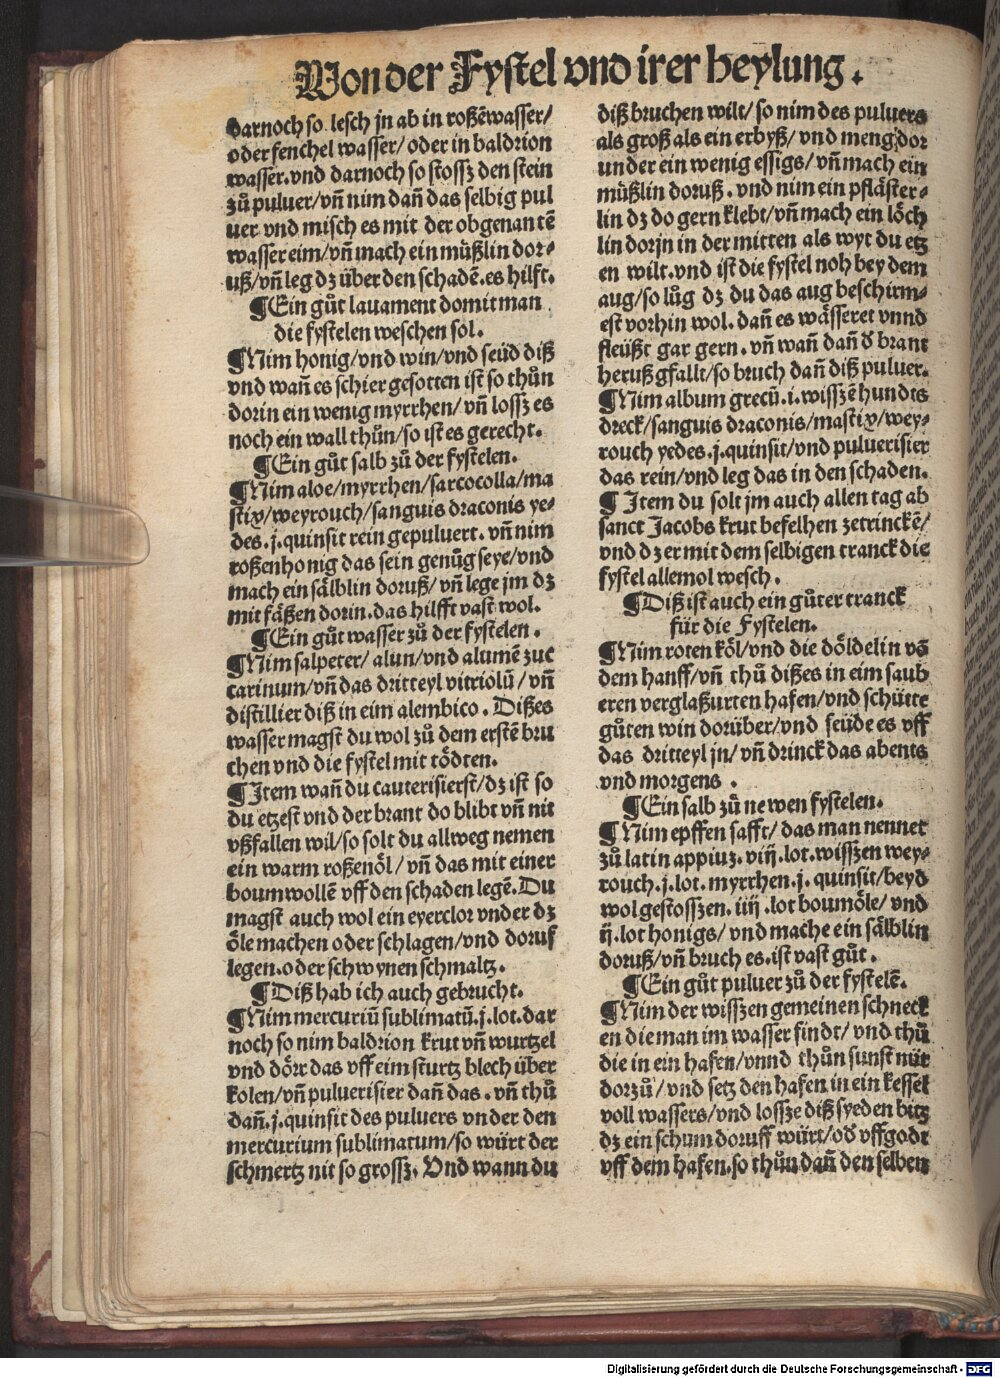 Von der Fystel vnd irer heylung.
darnoch so lesch jn ab in roßēwasser/
oder fenchel wasser/ oder in baldrion
wasser. vnd darnoch so stossz den stein
zů puluer/ vñ nim dañ das selbig pul
uer vnd misch es mit der obgenantē
wasser eim/ vñ mach ein müßlin dor⸗
uß/ vñ leg dz über den schadē. es hilft.
¶Ein gůt lauament domit man
die fystelen weschen sol.
¶Nim honig/ vnd win/ vnd seüd diß
vnd wañ es schier gesotten ist so thůn
dorin ein wenig myrrhen/ vñ lossz es
noch ein wall thůn/ so ist es gerecht.
¶Ein gůt salb zů der fystelen.
¶Nim aloe/ myrrhen/ sarcocolla/ ma
stix/ weyrouch/ sanguis draconis ye⸗
des. j. quinsit rein gepuluert. vñ nim
roßenhonig das sein genůg seye/ vnd
mach ein sälblin doruß/ vñ lege jm dz
mit fäßen dorin. das hilfft vast wol.
¶Ein gůt wasser zů der fystelen.
¶Nim salpeter/ alun/ vnd alumē zuc
carinum/ vñ das dritteyl vitriolū/ vñ
distillier diß in eim alembico. Dißes
wasser magst du wol zů dem erstē bru
chen vnd die fystel mit tödten.
¶Item wañ du cauterisierst/ dz ist so
du etzest vnd der brant do blibt vñ nit
vßfallen wil/ so solt du allweg nemen
ein warm roßenöl/ vñ das mit einer
boumwollē vff den schaden legē. Du
magst auch wol ein eyerclor vnder dz
öle machen oder schlagen/ vnd doruf
legen. oder schwynen schmaltz.
¶Diß hab ich auch gebrucht.
¶Nim mercuriū sublimatū. j. lot. dar
noch so nim baldrion krut vñ wurtzel
vnd dörr das vff eim sturtz blech über
kolen/ vñ puluerisier dañ das. vñ thů
dañ. j. quinsit des puluers vnder den
mercurium sublimatum/ so würt der
schmertz nit so grossz. Vnd wann du
diß bruchen wilt/ so nim des puluers
als groß als ein erbyß/ vnd meng dor
under ein wenig essigs/ vñ mach ein
müßlin doruß. vnd nim ein pfläster⸗
lin dz do gern klebt/ vñ mach ein löch
lin dorjn in der mitten als wyt du etz
en wilt. vnd ist die fystel noh bey dem
aug/ so lůg dz du das aug beschirm⸗
est vorhin wol. dañ es wässeret vnnd
fleüßt gar gern. vñ wañ dañ d̄ brant
heruß gfallt/ so bruch dañ diß puluer.
¶Nim album grecū. i. wisszē hundts
dreck/ sanguis draconis/ mastix/ wey⸗
rouch yedes. j. quinsit/ vnd puluerisier
das rein/ vnd leg das in den schaden.
¶Item du solt jm auch allen tag ab
sanct Jacobs krut befelhen zetrinckē/
vnd dz er mit dem selbigen tranck die
fystel allemol wesch.
¶Diß ist auch ein gůter tranck
für die Fystelen.
¶Nim roten köl/ vnd die döldelin vō
dem hanff/ vñ thů dißes in eim saub
eren verglaßurten hafen/ vnd schütte
gůten win dorüber/ vnd seüde es vff
das dritteyl jn/ vñ drinck das abents
vnd morgens.
¶Ein salb zů newen fystelen.
¶Nim epffen safft/ das man nennet
zů latin appiuz. viij. lot. wisszen wey⸗
rouch. j. lot. myrrhen. j. quinsit/ beyd
wol gestosszen. iiij. lot boumöle/ vnd
ij. lot honigs/ vnd mache ein sälblin
doruß/ vñ bruch es. ist vast gůt.
¶Ein gůt puluer zů der fystelē.
¶Nim der wisszen gemeinen schneck
en die man im wasser findt/ vnd thů
die in ein hafen/ vnnd thůn sunst nüt
dorzů/ vnd setz den hafen in ein kessel
voll wassers/ vnd lossze diß syeden bitz
dz ein schum doruff würt/ od̄ vffgodt
vff dem hafen. so thůn dañ den selben
Digitalisierung gefördert durch die Deutsche Forschungsgemeinschaft - DFG